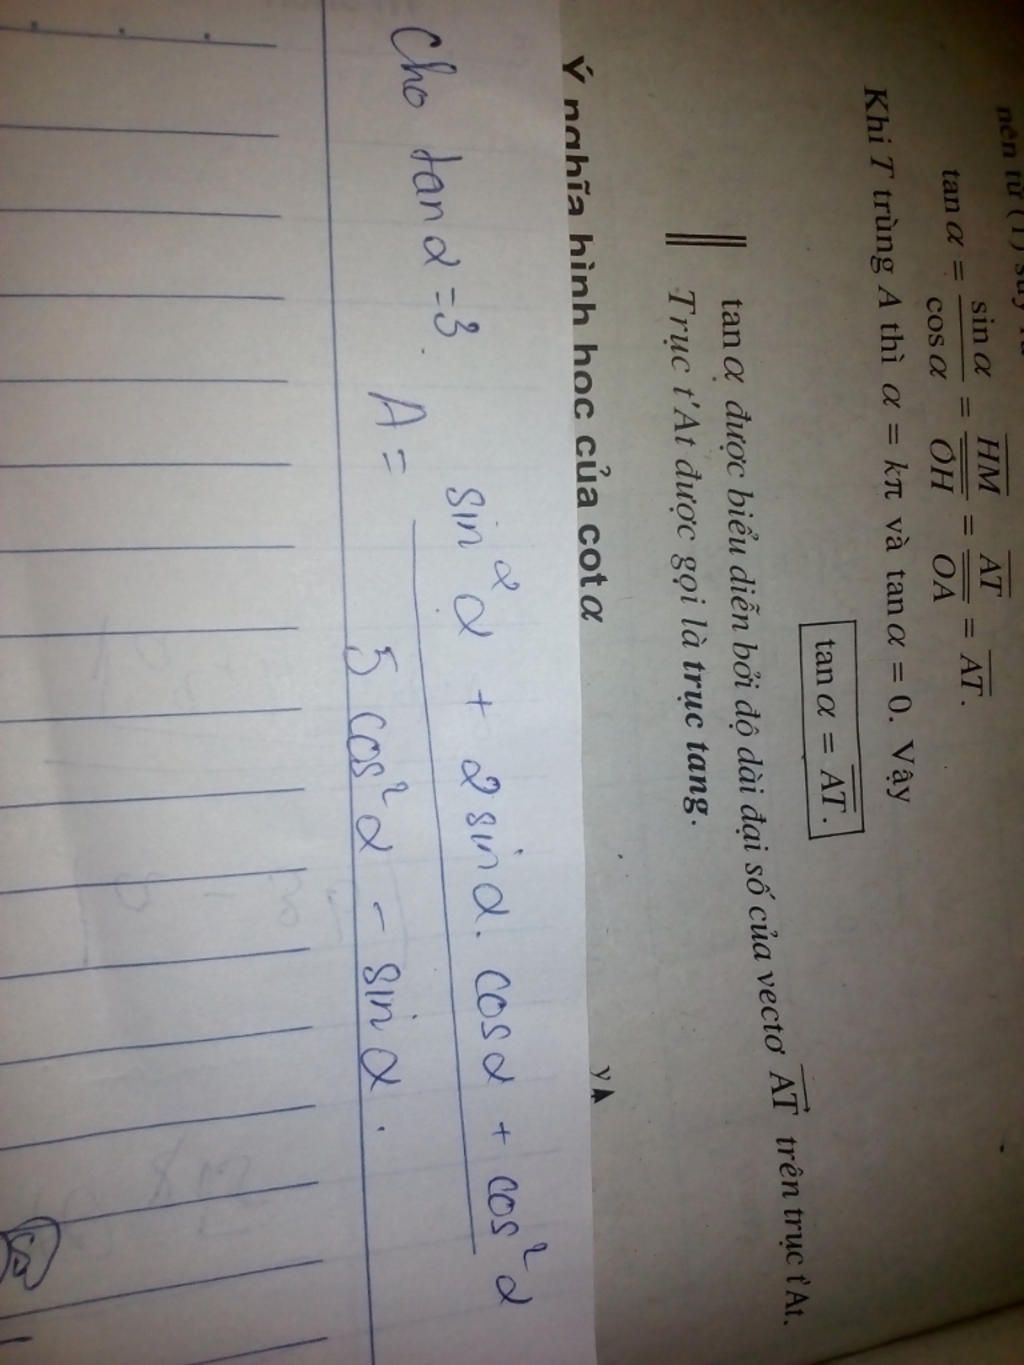 nên từ (1) suy ra
tan α = sin α / cos α = \overline{HM} / \overline{OH} = \overline{AT} / \overline{OA} = \overline{AT}.
Khi T trùng A thì α = kπ và tan α = 0. Vậy
tan α = \overline{AT}.
tan α được biểu diễn bởi độ dài đại số của vectơ \overrightarrow{AT} trên trục t'At.
Trục t'At được gọi là trục tang.
Ý nghĩa hình học của cot α
y
Cho tan α = 3. A = (sin²α + 2 sin α. cos α + cos²α) / (5 cos²α - sin α.)